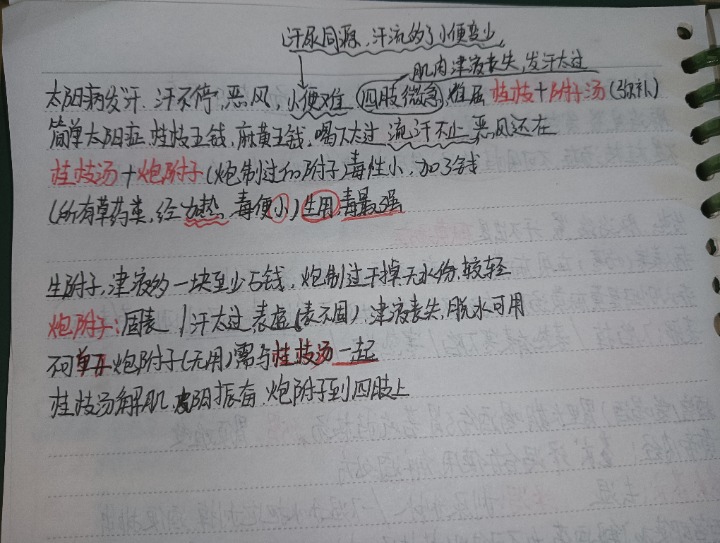 汗尿同源,汗流的多小便变少
肌肉津液丧失,发汗太过
太阳病发汗.汗不停,恶风,小便难 四肢微急,难屈 桂枝+附子汤(弥补)
简单太阳症,桂枝五钱,麻黄五钱,喝下太过 流汗不止 恶风还在
桂枝汤+炮附子(炮制过的附子)毒性小,加3钱
(所有草药类,经加热 毒便小)生用毒最强
生附子,津液的一块至少5钱,炮制过干掉,无水份,较轻
炮附子:固表 / 汗太过 表虚(表不固) 津液丧失,脱水可用
不可单开炮附子(无用)需与桂枝汤一起
桂枝汤解肌 阳振奋.炮附子到四肢上